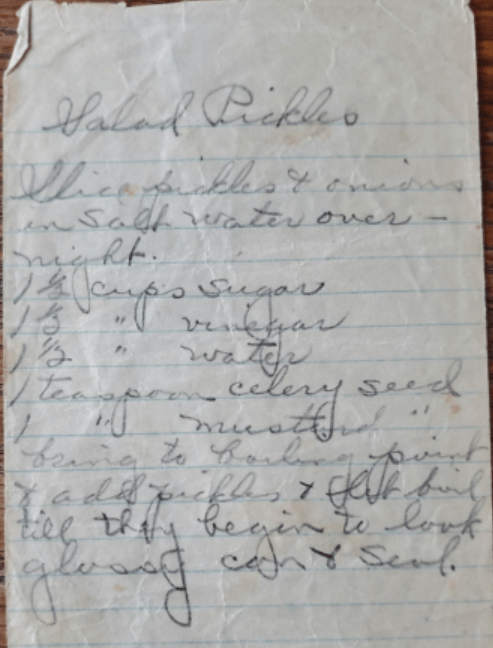 Salad Pickles
Slice pickles & onions
in salt water over -
night.
1 ½ cups sugar
1 ½ " vinegar
1 ½ " water
1 teaspoon celery seed
1 " mustard "
bring to boiling point
& add pickles & let boil
till they begin to look
glossy can & seal.